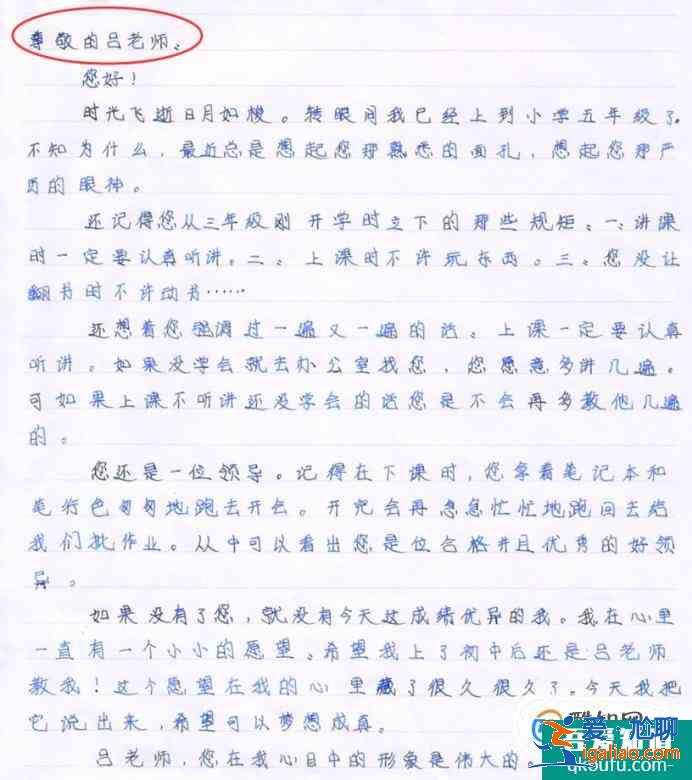 尊敬的吕老师、
您好！
时光飞逝日月如梭。转眼间我已经上到小学五年级了。
不知为什么，最近总是想起您那熟悉的面孔，想起您那严
厉的眼神。
还记得您从三年级刚开学时立下的那些规矩。一、讲课
时一定要认真听讲。二、上课时不许玩东西。三、您没让
翻书时不许动书……
还想着您强调过一遍又一遍的话。上课一定要认真
听讲。如果没学会就去办公室找您，您愿意多讲几遍。
可如果上课不听讲还没学会的话您是不会再多教他几遍
的。
您还是一位领导。记得在下课时，您拿着笔记本和
笔行色匆匆地跑去开会。开完会再急急忙忙地跑回去给
我们批作业。从中可以看出您是位合格并且优秀的好领
导。
如果没有了您，就没有今天这成绩优异的我。我在心里
一直有一个小小的愿望。希望我上了初中后还是吕老师
教我！这个愿望在我的心里藏了很久很久了。今天我把
它说出来，希望可以梦想成真。
吕老师，您在我心目中的形象是伟大的。
爱尬聊